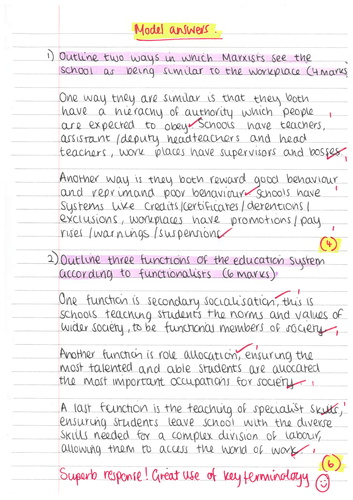 Model answers.
1) Outline two ways in which Marxists see the
school as being similar to the workplace (4 marks)
One way they are similar is that they both
have a hierachy of authority which people
are expected to obey. Schools have teachers,
assistant/deputy headteachers and head
teachers, work places have supervisors and bosses.
Another way is they both reward good behaviour
and reprimand poor behaviour. Schools have
systems like credits/certificates/detentions/
exclusions, workplaces have promotions/pay
rises/warnings/suspensions.
4
2) Outline three functions of the education system
according to functionalists (6 marks)
One function is secondary socialisation, this is
schools teaching students the norms and values of
wider society, to be functional members of society.
Another function is role allocation, ensuring the
most talented and able students are allocated
the most important occupations for society.
A last function is the teaching of specialist skills,
ensuring students leave school with the diverse
skills needed for a complex division of labour,
allowing them to access the world of work.
6
Superb response! Great use of key terminology